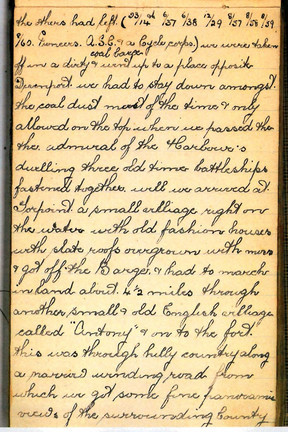 the others had left. (53/14 1/57 6/38 12/59 8/57 8/58 8/59
8/60. Pioneers. A.S.C. & a Cycle corps.) we were taken
coal barge
off in a dirty & wend up to a place opposite
Devonport we had to stay down amongst
the coal dust most of the time & only
allowed on the top when we passed the
the admiral of the Harbour's
dwelling three old time battleships
fastened together, well we arrived at
Torpoint a small village right on
the water with old fashion houses
with slate roofs overgrown with moss
& got off the Barge, & had to march
inland about 4½ miles through
another small & old English village
called "Antony" & on to the fort.
this was through hilly country along
a narrow winding road from
which we got some fine panoramic
views of the surrounding County